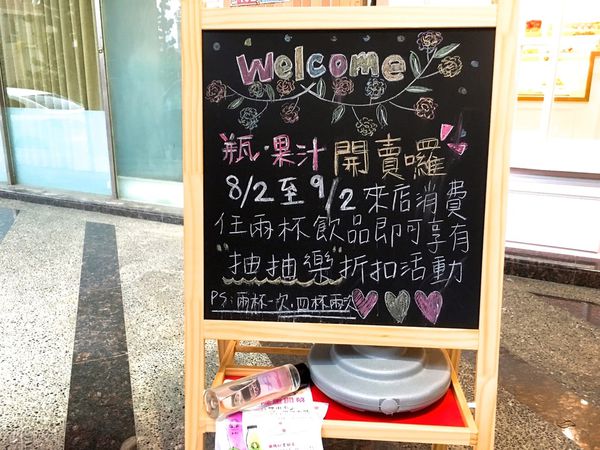 Welcome
瓶·果汁 開賣囉
8/2至9/2來店消費
任兩杯飲品即可享有
"抽抽樂"折扣活動
PS:兩杯一次,四杯兩次